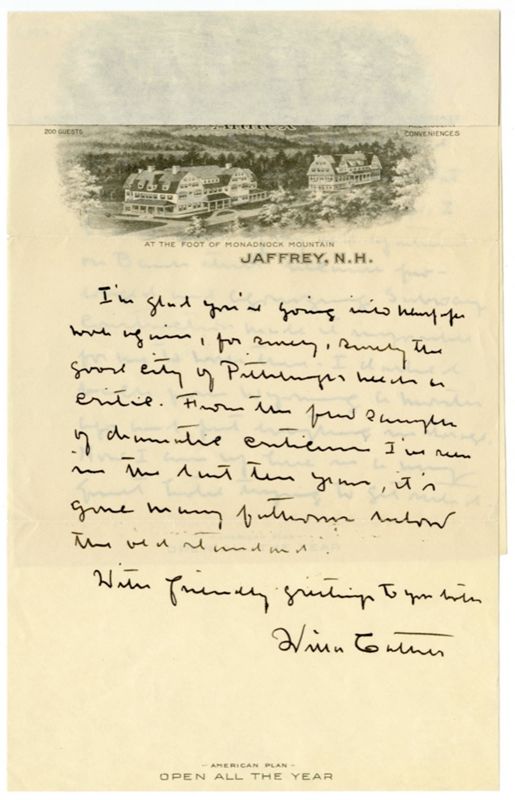 Annex
200 GUESTS
CONVENIENCES
AT THE FOOT OF MONADNOCK MOUNTAIN
JAFFREY, N.H.
I'm glad you're going into newspaper
work again, for surely, surely the
good city of Pittsburgh needs a
critic. From the few samples
of dramatic criticism I've seen
in the last ten years, it's
gone many fathoms below
the old standard.
With friendly greetings to you both
Willa Cather
- AMERICAN PLAN -
OPEN ALL THE YEAR